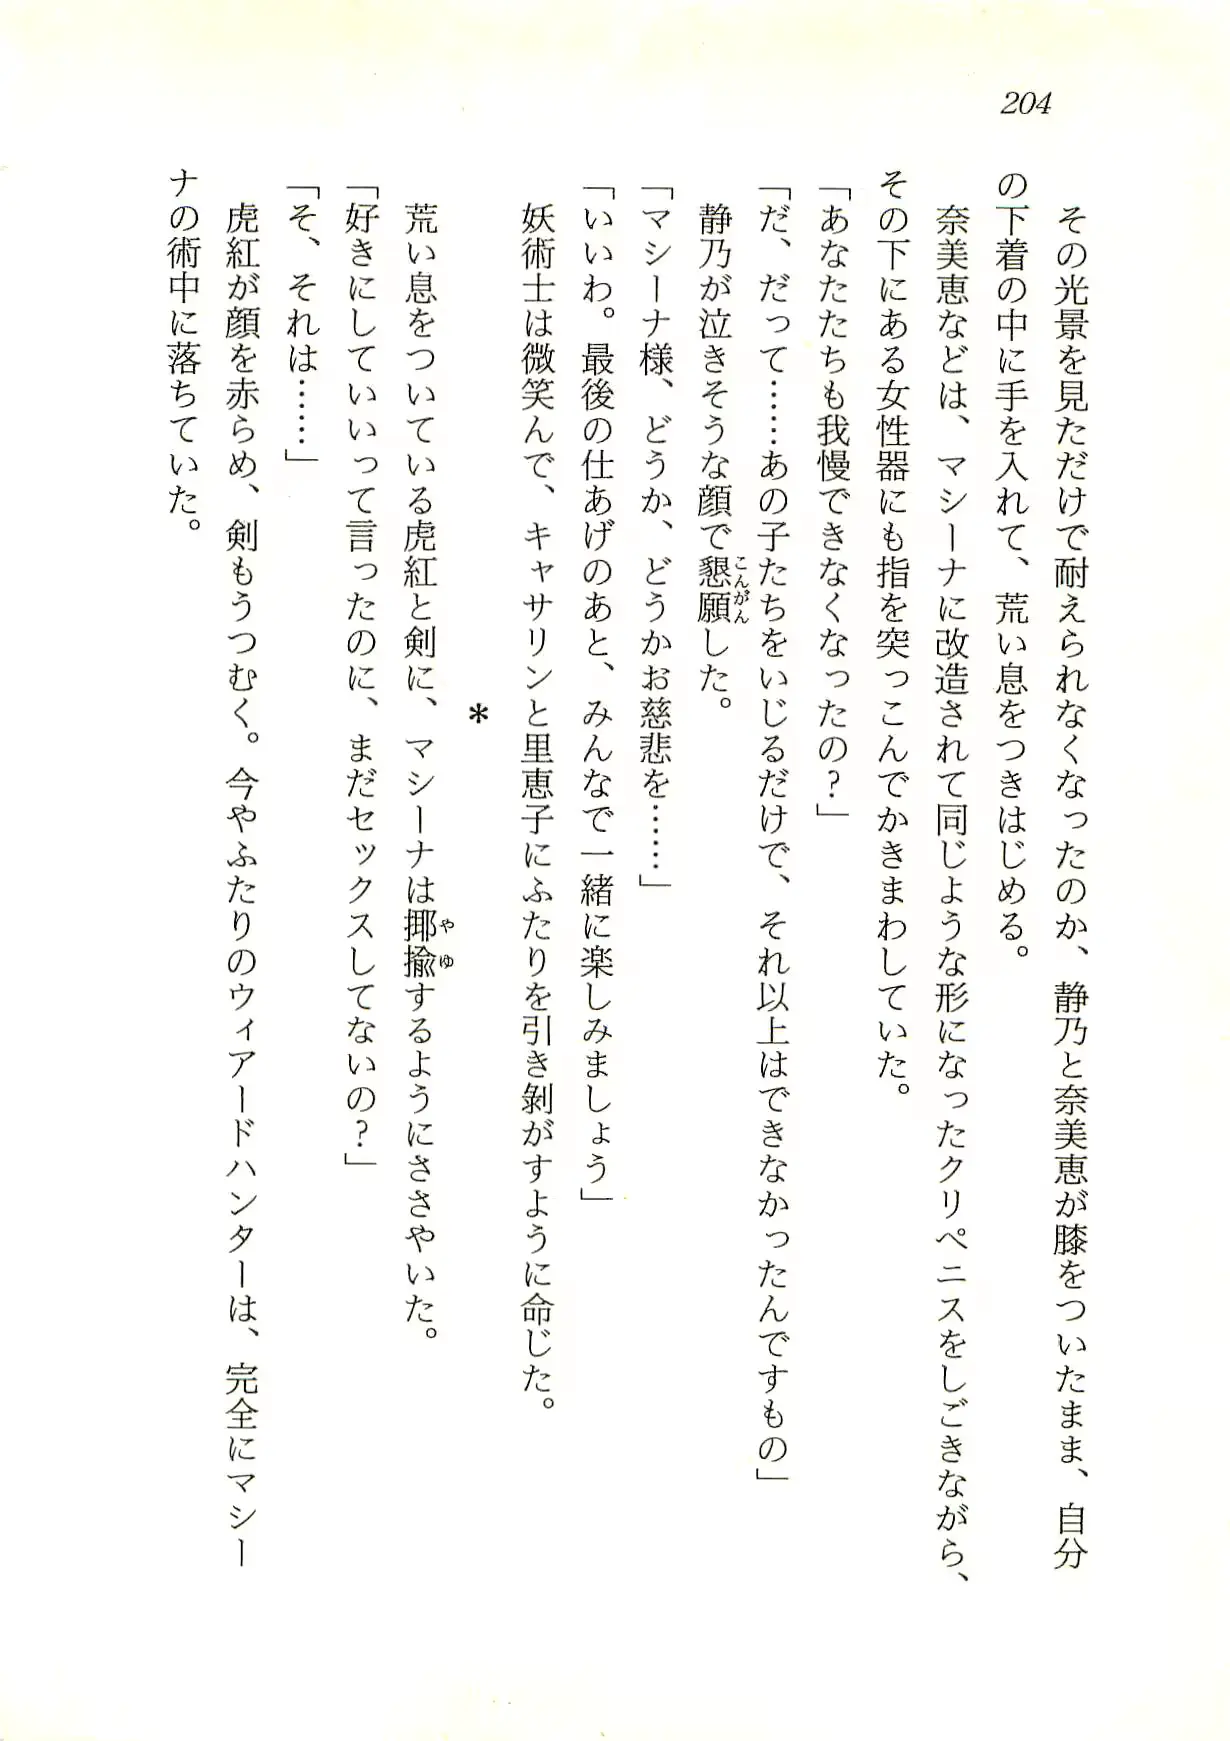 204
その光景を見ただけで耐えられなくなったのか、静乃と奈美恵が膝をついたまま、自分
の下着の中に手を入れて、荒い息をつきはじめる。
奈美恵などは、マシーナに改造されて同じような形になったクリペニスをしごきながら、
その下にある女性器にも指を突っこんでかきまわしていた。
「あなたたちも我慢できなくなったの？」
「だ、だって……あの子たちをいじるだけで、それ以上はできなかったんですもの」
静乃が泣きそうな顔で懇願こんがんした。
「マシーナ様、どうか、どうかお慈悲を……」
「いいわ。最後の仕あげのあと、みんなで一緒に楽しみましょう」
妖術士は微笑んで、キャサリンと里恵子にふたりを引き剝がすように命じた。
＊
荒い息をついている虎紅と剣に、マシーナは揶揄やゆするようにささやいた。
「好きにしていいって言ったのに、まだセックスしてないの？」
「そ、それは……」
虎紅が顔を赤らめ、剣もうつむく。今やふたりのウィアードハンターは、完全にマシー
ナの術中に落ちていた。